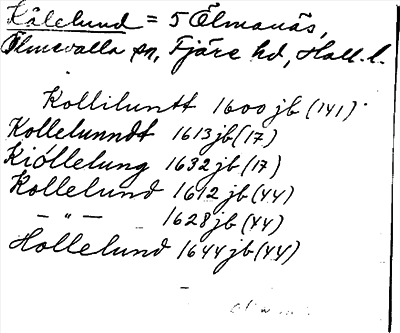 Kålelund = 5 Ölmanäs,
Ölmevalla sn, Fjäre hd, Hall. l.
Kolliluntt 1600 jb (141)
Kollelunndt 1613 jb (17)
Kiöllelung 1632 jb (17)
Kollelund 1612 jb (44)
— " — 1628 jb (44)
Hollelund 1644 jb (44)